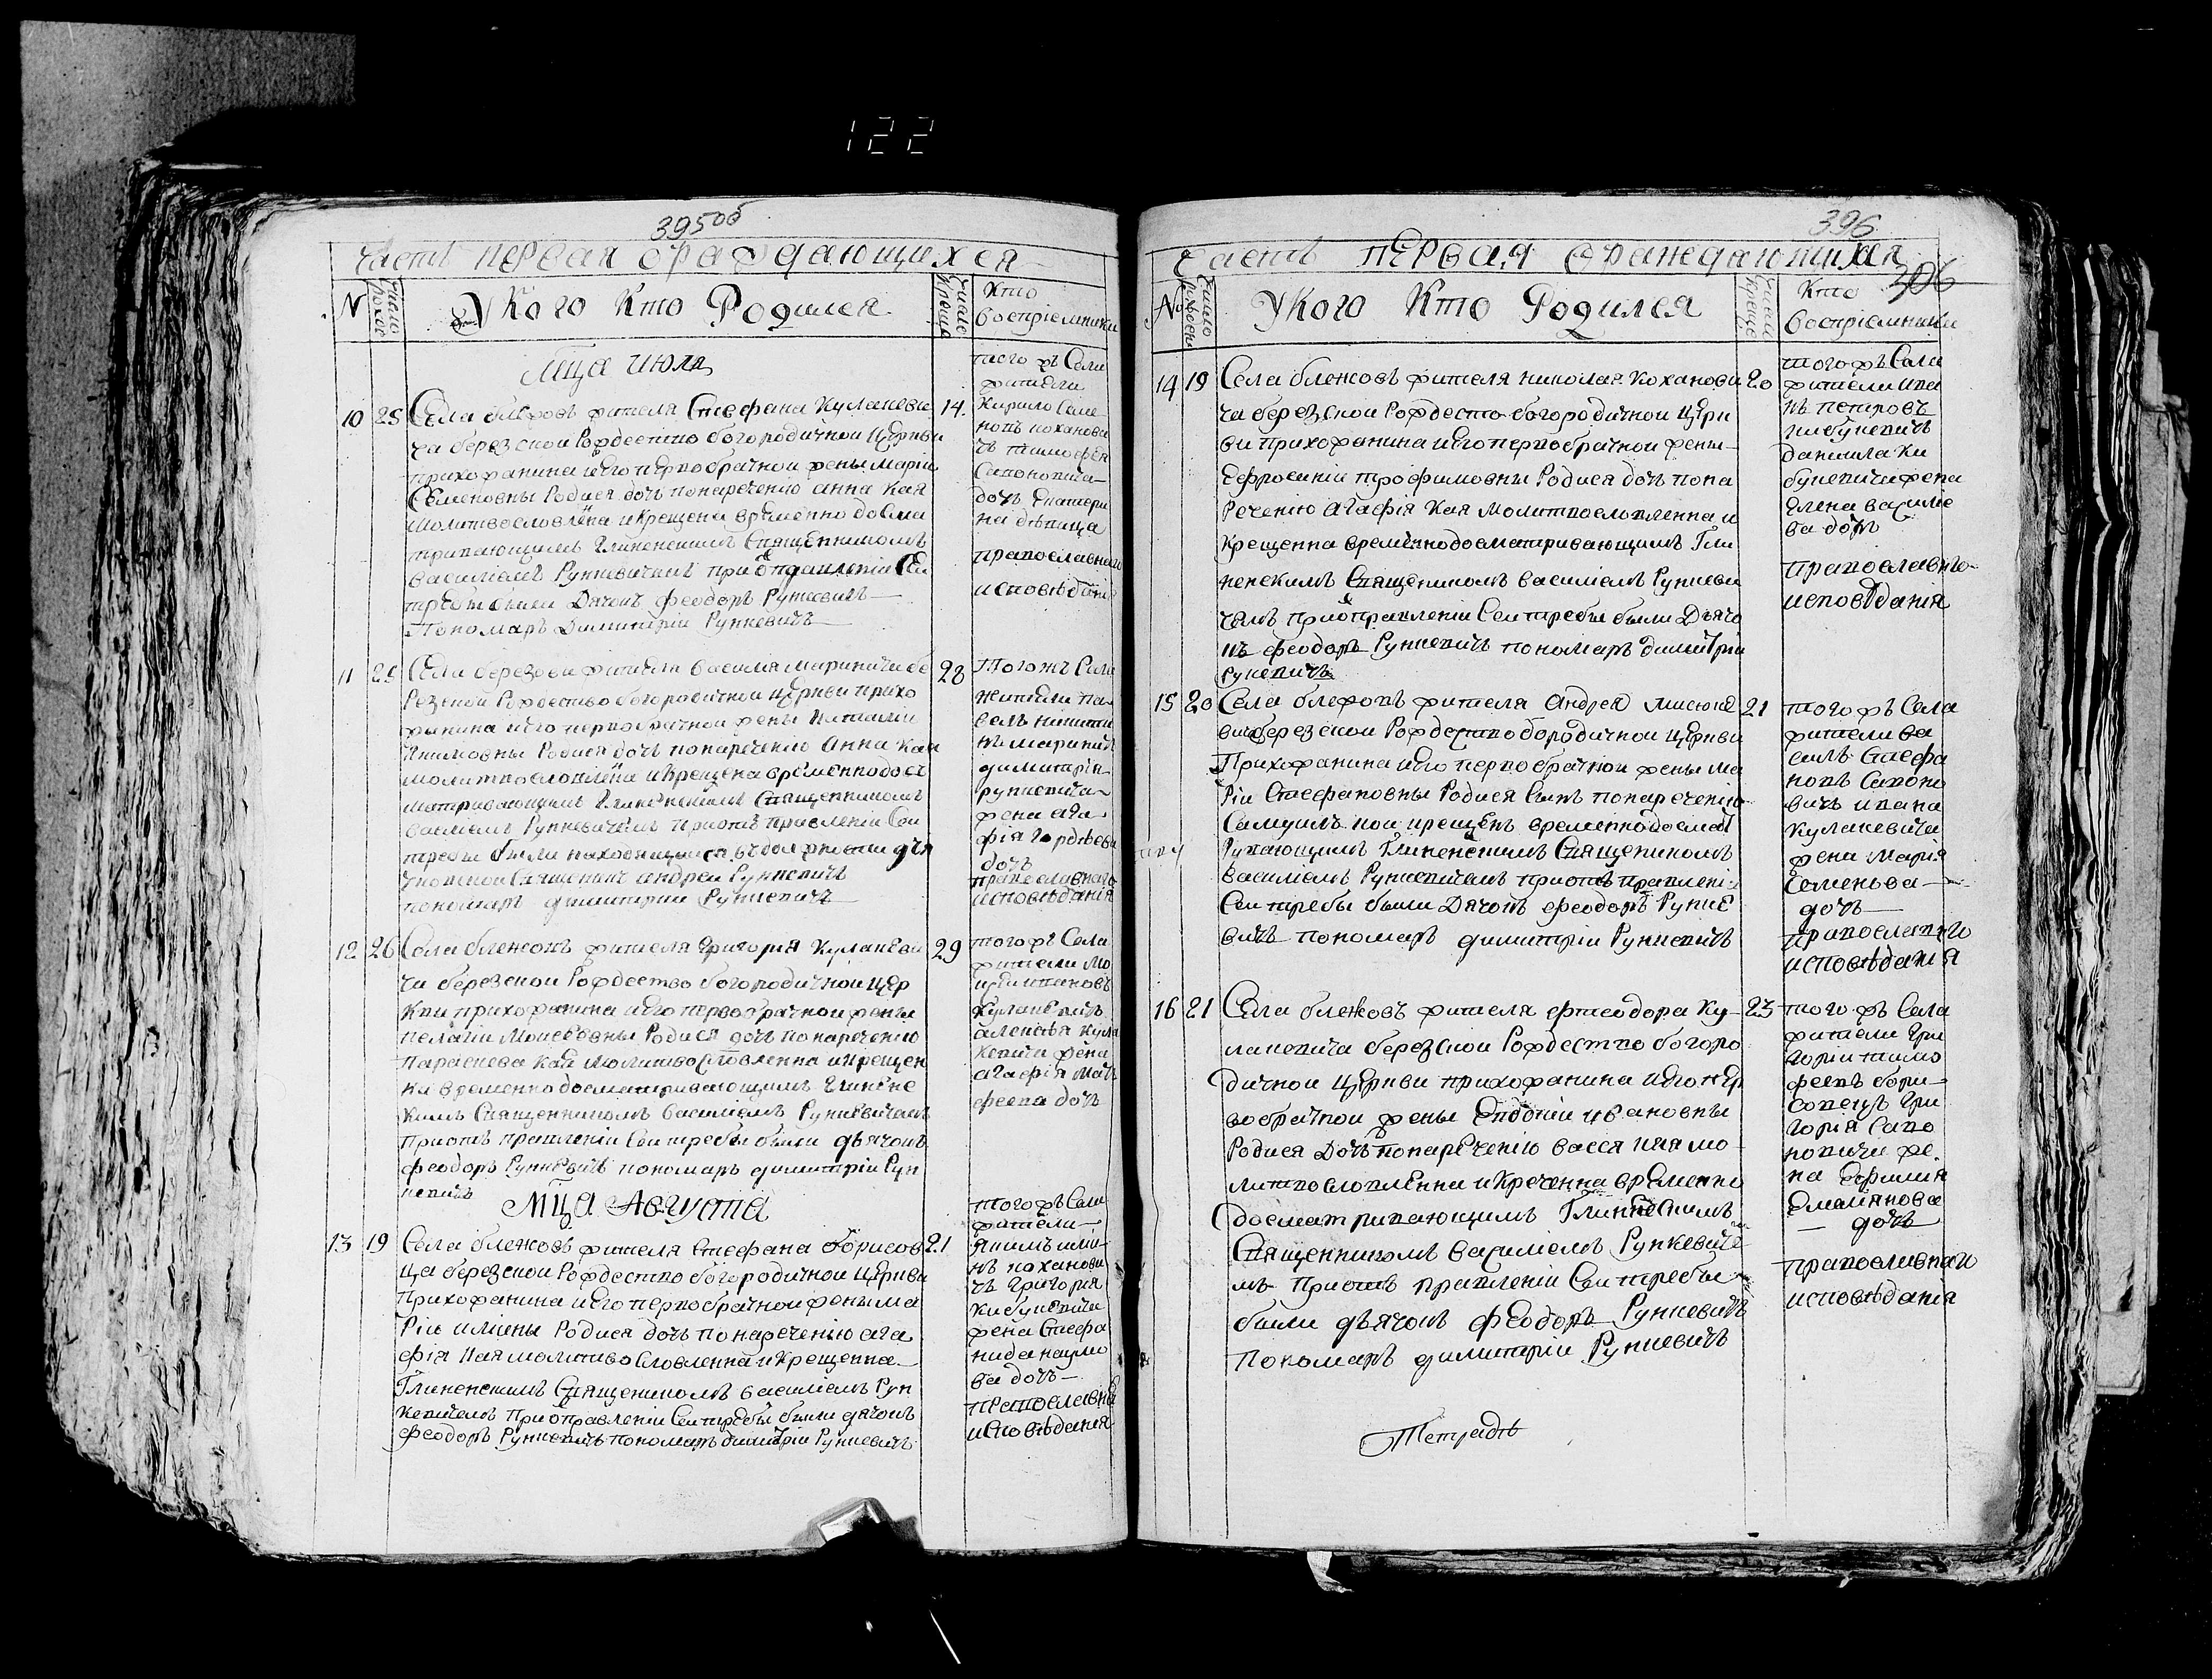 122
395 об
Часть первая о раждающихся
№
Число рожде
У Кого Кто Родился
Число Креще
Кто воспріемники
Мца Июля
10 25 14.
Села блежовъ жителя Стефана Кулакеви
ча березской Рождество богородичной Церкви
прихожанина и его первобрачной жены Маріи
Семеновны Родися дочь понаречению анна кая
молитвословлена и Крещена временно досма
тривающимъ Глиненскимъ Священникомъ
василіемъ Рункевичемъ при отправленіи Сеи
требы были Дячокъ феодоръ Рункевичъ
Пономаръ Димитріи Рункевичъ
того жъ Села
жители
Кирило Семе
новъ кохнови
чъ тимофея
Сапоновича
дочь Екатери
на дѣвица
православнаго
исповѣданія
11 25 28
Села березови жителя василя мариничи бе
резской Рождество богородичной Церкви прихо
жанина и его первобрачной жены Наталіи
Якимовны Родися дочь понаречению Анна кая
молитвословлена и Крещена временно дос
матривающимъ Глиненскимъ Священникомъ
василіемъ Рункевичемъ при отъ правленіи Сеи
требы были находящиися въ должности дья
чковской Священикъ андреи Рункевичъ
пономаръ димитріи Рункевичъ
Того жъ Села
жители па
велъ никити
нъ маринич
димитрія
рункевича
жена ага
фія Гордѣева
дочь
православнаго
исповѣданія
12 26 29
Села блежовъ жителя Григорія Кулакеви
ча березской Рождество богородичной Цер
кви прихожанина и его первобрачной жены
пелагіи Моисеевны Родися дочь понаречению
Параскева кая молитвословленна и Крещен
на временно досматривающимъ Глинене
кимъ Священникомъ василіемъ Рункевичемъ
при отъ правленіи Сеи требы были дьячокъ
феодоръ Рункевичъ пономаръ димитріи Рун
кевичъ
того жъ Села
жители
Кулакевичъ
алексѣя Кула
кевича жена
агафія Мат
феева дочь
Мца Августа
13 19 21
Села блежовъ жителя Стефана борисов
ца березской Рождество богородичной Церкви
Прихожанина и его первобрачной жены ма
ріи илины Родися дочь понаречению ага
фія кая молитвословленна и Крещенна
Глиненскимъ Священикомъ василіемъ Рун
кевичемъ при отправленіи Сеи требы были дячокъ
феодоръ Рункевичъ пономаръ димитріи Рункевичъ
того жъ Села
жители
якимъ или
нъ коханови
чъ Григорія
Кибукевича
жена Стефа
нида наумо
ва дочь
православна
исповѣданія
396
306
Часть первая о раждающихся
№
Число рожден
У Кого Кто Родился
Число Креще
Кто воспріемники
14 19 20
Села блежовъ жителя николая Коханови
ча березской Рождесто богородичной Церк
ви прихожанина и его первобрачной жены
Ефросиніи трофимовны Родися дочь пона
речению агафія кая молитвословленна и
крещенна временно досматривающимъ Гли
ненскимъ Священикомъ василіемъ Рункеви
чемъ при отправленіи Сеи требы были Дьячо
къ феодоръ Рункевичъ пономаръ димитріи
рукевичъ
того жъ Села
жители ива
нъ петровъ
кибукевичъ
даниила Ки
букевича жена
Елена василіе
ва дочь
православнаго
исповѣданія
15 20 21
Села блежовъ жителя Андрея мисюке
вича березской Рождество бородичной Церкви
Прихожанина и его первобрачной жены Ма
ріи Стефановны Родися Сынъ понаречению
Самуилъ кои крещенъ временно досмат
ривающимъ Глиненскимъ Священикомъ
василіемъ Рункевичемъ при отъ правлені
Сеи требы были Дячокъ феодоръ Рунке
вичъ пономаръ димитріи Рункевичъ
того жъ Села
жители ва
силъ Стефа
новъ Сапоно
вичъ ивана
Кулакевича
жена Марія
Семенова
дочь
православнаго
исповѣданія
16 21 23
Села блежовъ жителя фтеодора Ку
лакевича березской Рождество богоро
дичной Церкви прихожанина и его пер
вобрачной жены Евдокіи ивановны
Родися Дочь понаречению васса кая мо
литвословленна и Креченна временно
досматривающимъ Глиненскимъ
Священникомъ василіемъ Рункевиче
мъ при отъ правленіи Сеи требы
были дьячокъ феодоръ Рункевичъ
Пономаръ димитріи Рункевичъ
того жъ Села
жители Гри
горіи тимо
феевъ бори
совецъ Гри
горія Сапо
новича же
на Ефимия
Емелянова
дочь
православнаго
исповѣданія
Тетрадь